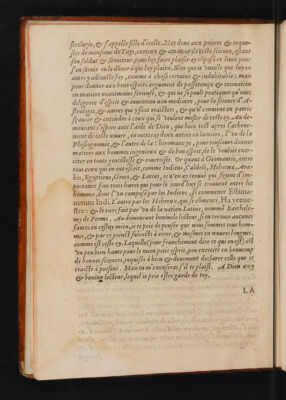 strologie, & s'appelle fille d'icelle. Or ay donc aux prieres & reque-
stes de monsieur de Tays, curieux & amateur de ceste science, estant
son soldat & serviteur, pour luy faire plaisir & copié ce livre pour
s'en servir
autre y adiouste foy, comme à chose certaine & indubitable: mais
pour donner aux bons esprits argument de passetemps & recreation
en matiere neantmoins serieuse, & qui ne se peult pratiquer qu'avec
diligence d'esprit & invention non mediocre, pour la science d'A-
strologie, & autres qui y sont traictez, & qu'il convient en partie
sçavoir & entendre à ceux qui se veulent mesler de ceste cy. Au de-
meurant i'espere avec l'aide de Dieu, que bien tost apres l'acheve-
ment de ceste œuvre, en mettray deux autres en lumiere, l'un de la
Phisionomie, & l'autre de la Chiromance, pour tousiours donner
matiere aux hommes ingenieux & de bon esprit, de se vouloir exer-
citer en toute gentillesse & courtoisie. Or quant à Geomantie, entre
tous ceux qui en ont escrit, comme Indiens, Caldées, Hebreux, Ara-
bes, Egyptiens, Grecs, & Latins, ie n'en ay trouvé qui soyent d'im-
portance sinon trois livres qui pour le iourd'huy se trouvent entre les
hommes, dont l'un composé par les Indiens, se commence Estima-
verunt Indi. L'autre par les Hebreux, qui se commence, Ha vene-
stre: & le tiers fait par un de la nation Latine, nommé Barthele-
my de Parme. Au demeurant benivole lecteur, si tu trouves aucunes
fautes en cestuy mien, ie te prie de penser que nous sommes tous hom-
mes, & par ce poinct subiects à errer, & mesmes en œuvres longues,
comme est ceste cy. Laquelle pour franchement dire ce qui en est est
un peu bien haute pour le mien petit esprit, peu exercité en beaucoup
de bonnes sciences, requises à bien & deuement declarer celle que ie
traicte à present. Mais tu m'excuseras s'il te plaist. A Dieu amy
& bening lecteur, lequel ie prie estre garde de toy.
LA